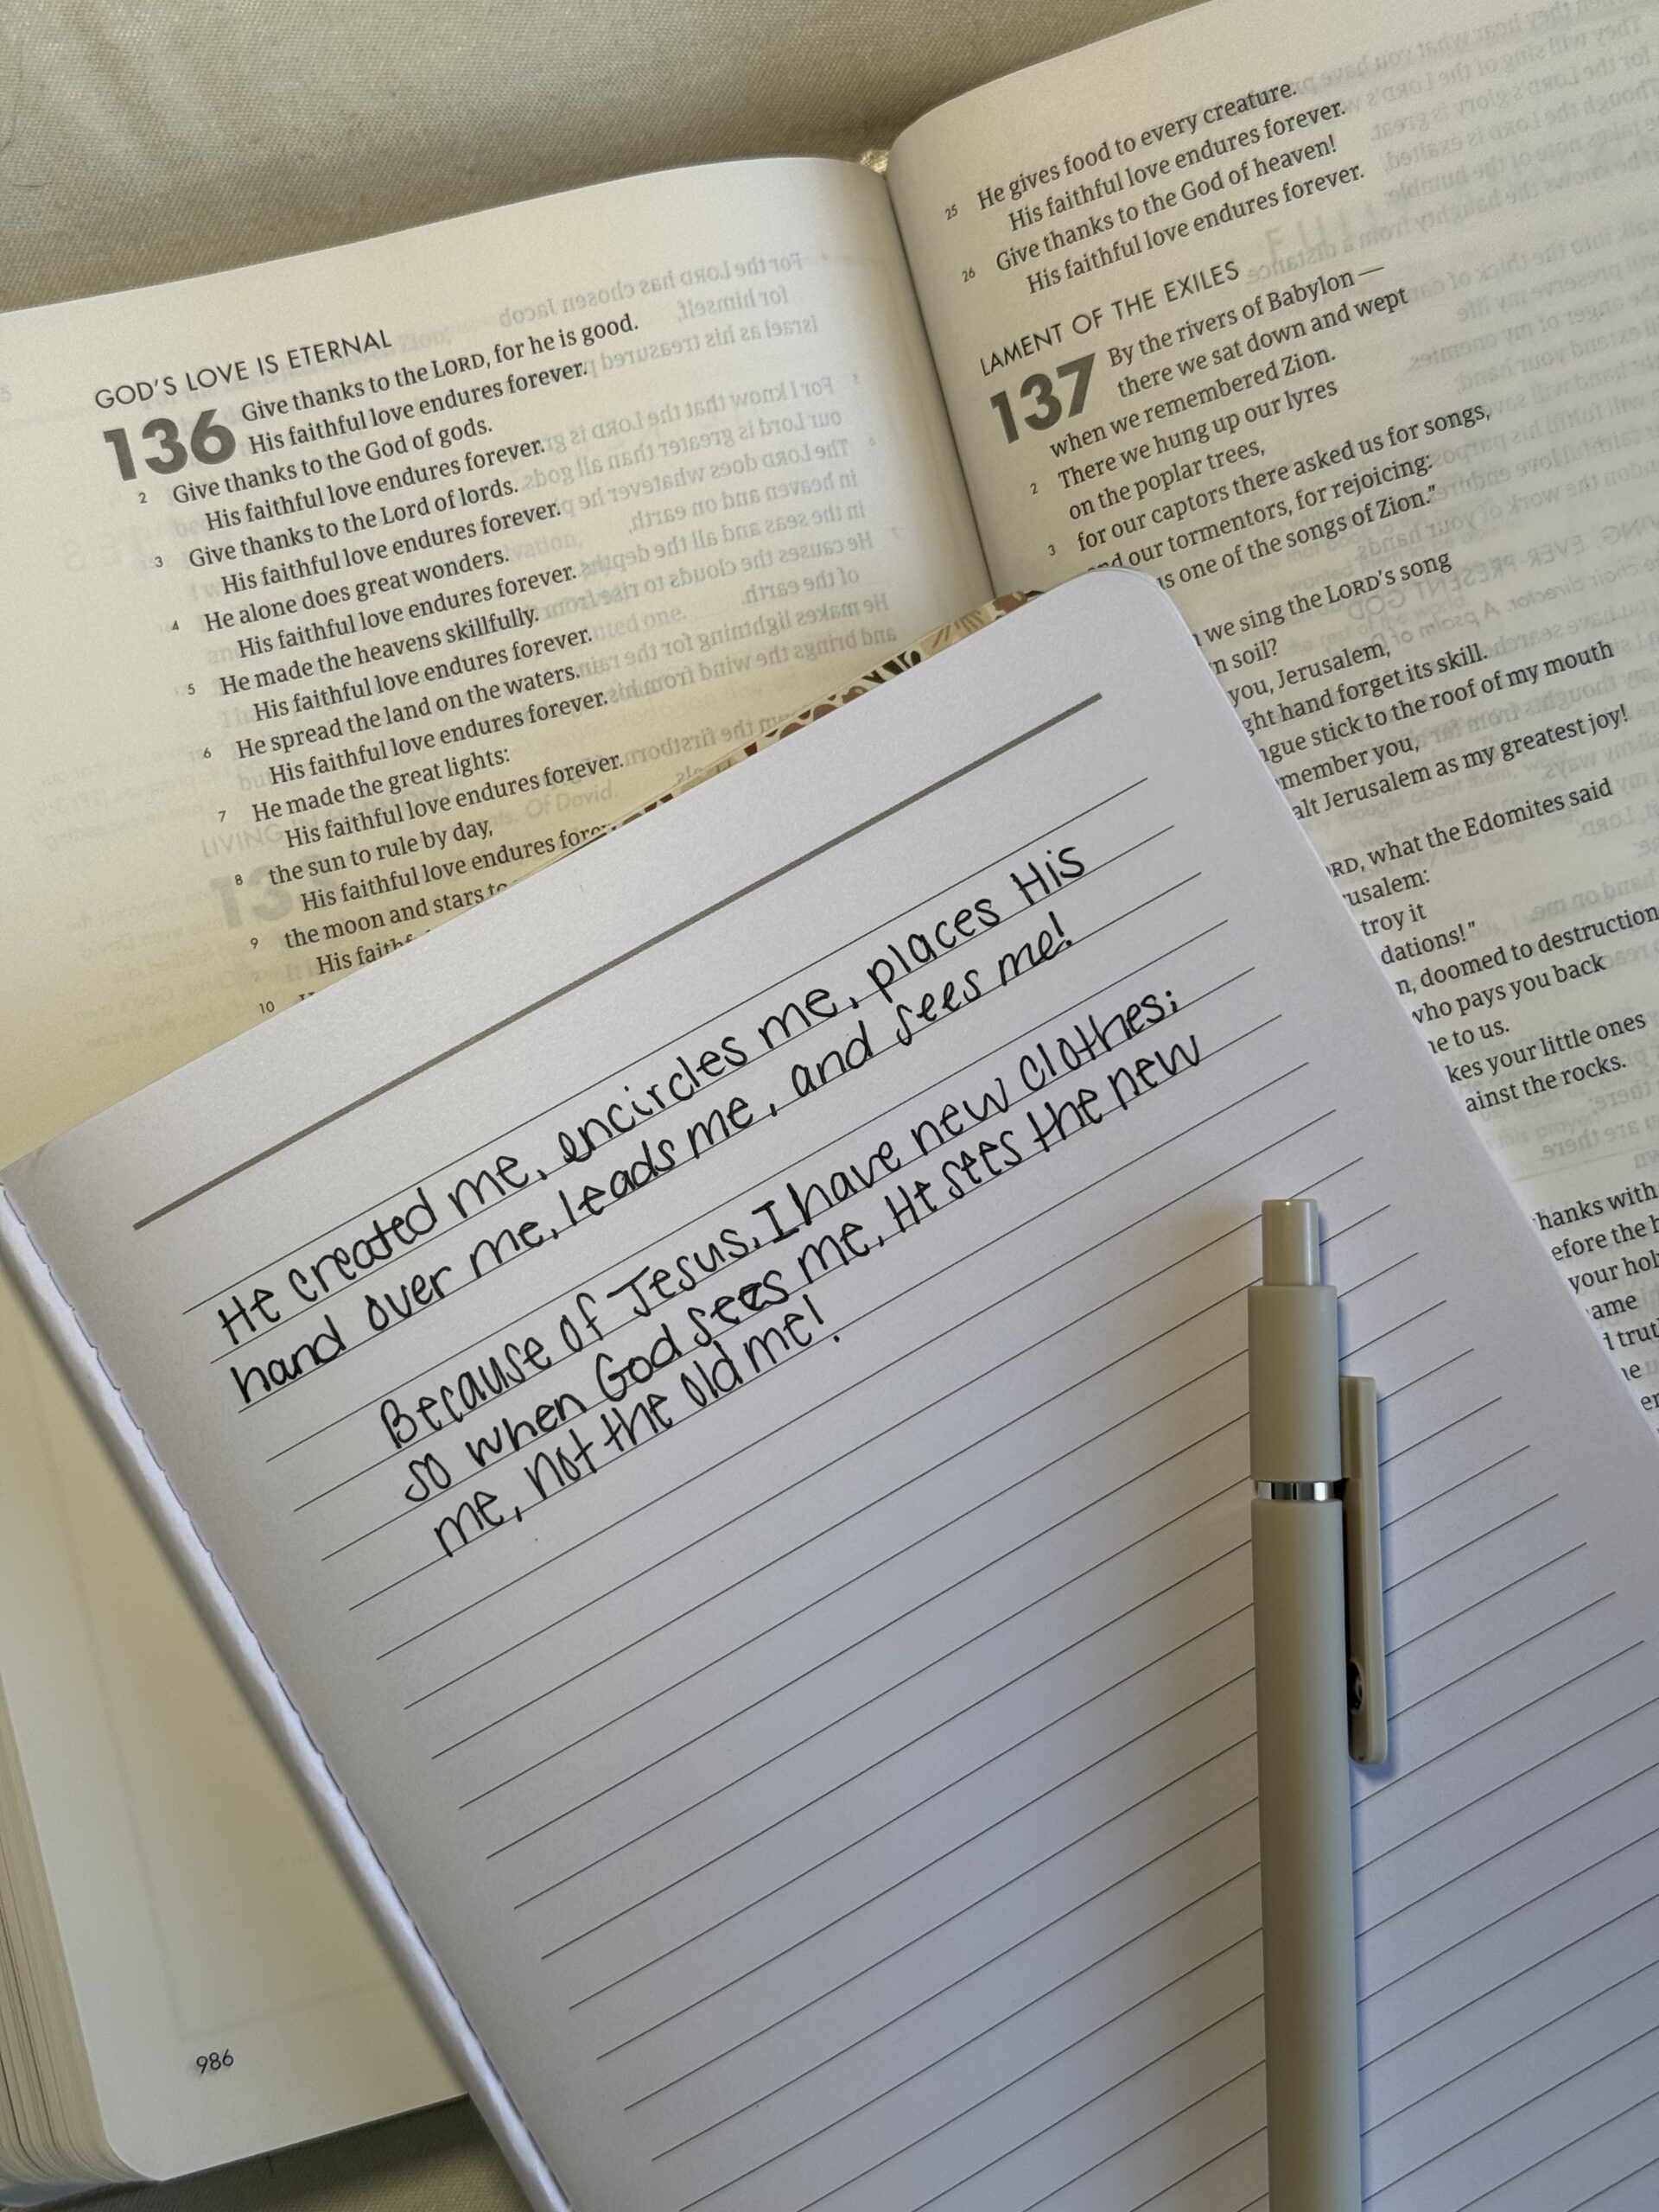 GOD'S LOVE IS ETERNAL
136 Give thanks to the LORD, for he is good.
His faithful love endures forever.
2 Give thanks to the God of gods.
His faithful love endures forever.
3 Give thanks to the Lord of lords.
His faithful love endures forever.
4 He alone does great wonders.
His faithful love endures forever.
5 He made the heavens skillfully.
His faithful love endures forever.
6 He spread the land on the waters.
His faithful love endures forever.
7 He made the great lights:
His faithful love endures forever.
8 the sun to rule by day,
His faithful love endures
9 the moon and stars
His
10
986
25 He gives food to every creature.
His faithful love endures forever.
26 Give thanks to the God of heaven!
His faithful love endures forever.
LAMENT OF THE EXILES
137 By the rivers of Babylon —
there we sat down and wept
when we remembered Zion.
2 There we hung up our lyres
on the poplar trees,
3 for our captors there asked us for songs,
our tormentors, for rejoicing:
one of the songs of Zion."
we sing the LORD's song
soil?
you, Jerusalem,
hand forget its skill.
stick to the roof of my mouth
you,
Jerusalem as my greatest joy!
what the Edomites said
it
doomed to destruction
who pays you back
to us.
your little ones
the rocks.
with
your
He created me, encircles me, places His
hand over me, leads me, and sees me!
Because of Jesus, I have new clothes;
so when God sees me, He sees the new
me, not the old me!